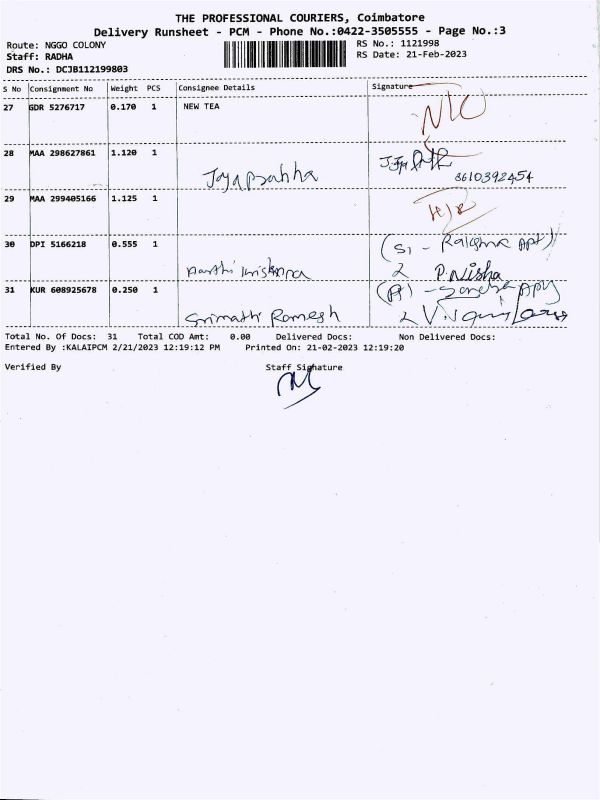 THE PROFESSIONAL COURIERS, Coimbatore
Delivery Runsheet - PCM - Phone No.:0422-3505555 - Page No.:3
Route: NGGO COLONY
RS No.: 1121998
Staff: RADHA
RS Date: 21-Feb-2023
DRS No.: DCJB112199803
S No Consignment No Weight PCS Consignee Details Signature
27 GDR 5276717 0.170 1 NEW TEA
28 MAA 298627861 1.120 1
Jayaprabha
8610392454
29 MAA 299405166 1.125 1
30 DPI 5166218 0.555 1
P.Nisha
31 KUR 608925678 0.250 1
Srimathi Ramesh
Total No. Of Docs: 31 Total COD Amt: 0.00 Delivered Docs: Non Delivered Docs:
Entered By :KALAIPCM 2/21/2023 12:19:12 PM Printed On: 21-02-2023 12:19:20
Verified By Staff Signature